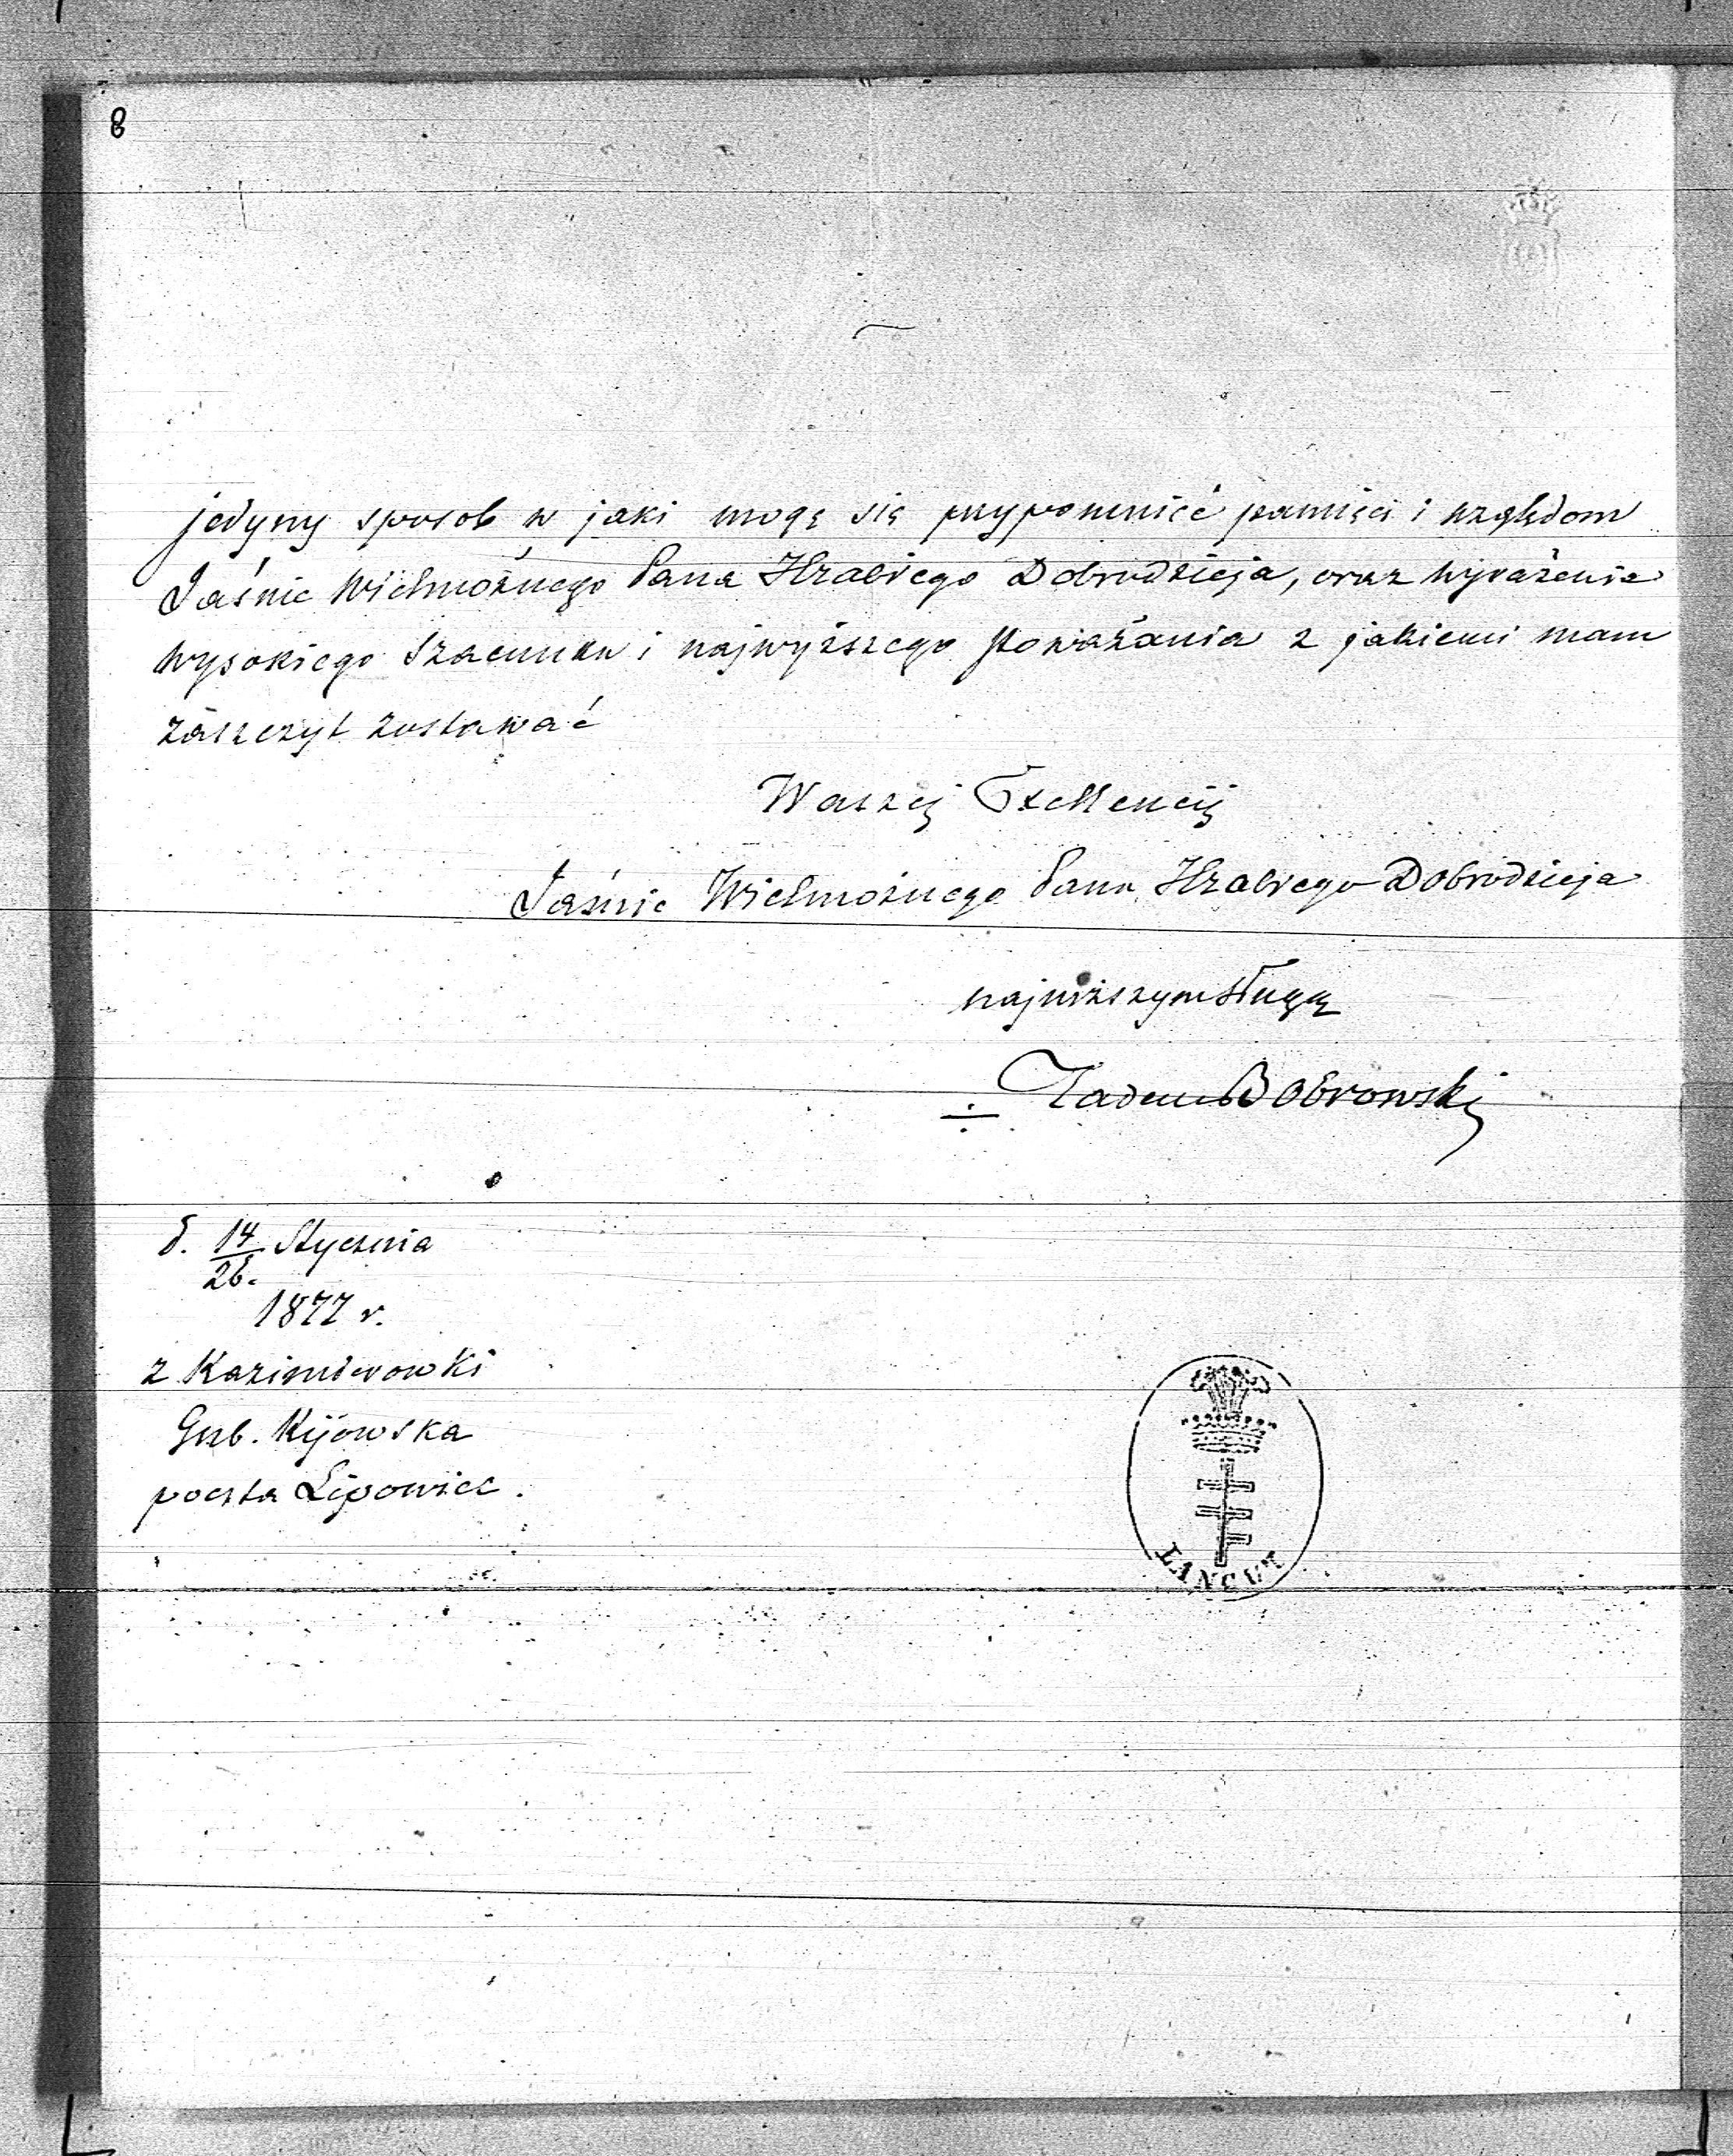 8
jedyny sposob w jaki mogę się przypomnieć pamięci i względom
Jaśnie Wielmożnego Pana Hrabiego Dobrodzieja, oraz wyrażenia
wysokiego szacunku i najwyższego poważania z jakiemi mam
zaszczyt zostawać
Waszej Excellencij
Jaśnie Wielmożnego Pana Hrabiego Dobrodzieja
najniższym sługą
Tadeusz Bobrowski
d. 14/26. Stycznia
1877 r.
z Kazimierowki
Gub. Kijowska
poczta Lipowiec.
ŁAŃCUT